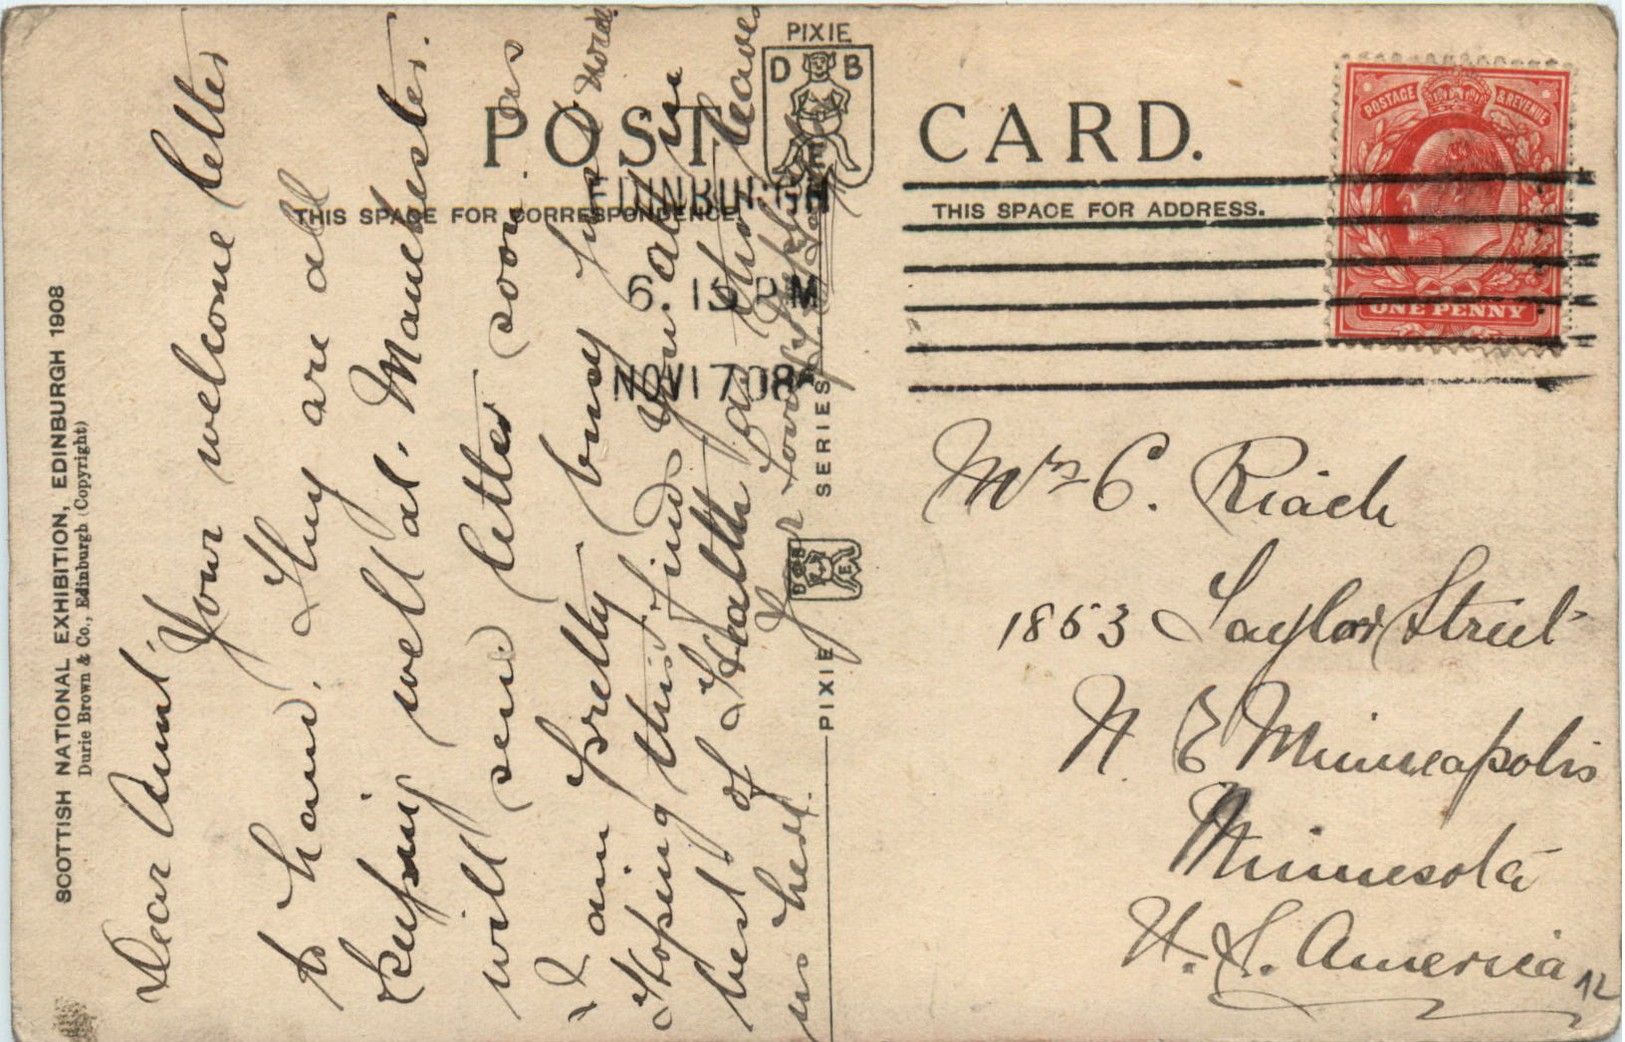 PIXIE
D B
F
POST CARD.
THIS SPACE FOR CORRESPONDENCE.
THIS SPACE FOR ADDRESS.
EDINBURGH
6. 15 PM
NOV 17 08
POSTAGE & REVENUE
ONE PENNY
SCOTTISH NATIONAL EXHIBITION, EDINBURGH 1908
Durie Brown & Co., Edinburgh (Copyright)
PIXIE SERIES
Dear Aunt, Your welcome letter
to hand. They are all
keeping well at. Manchester.
will send letter soon. as
I am pretty busy just now
Hoping this find you all in
best of Health as this leaves
us here. Your loving
Mrs C. Riach
1853 Taylor Street
N. E Minneapolis
Minnesota
U. S. America